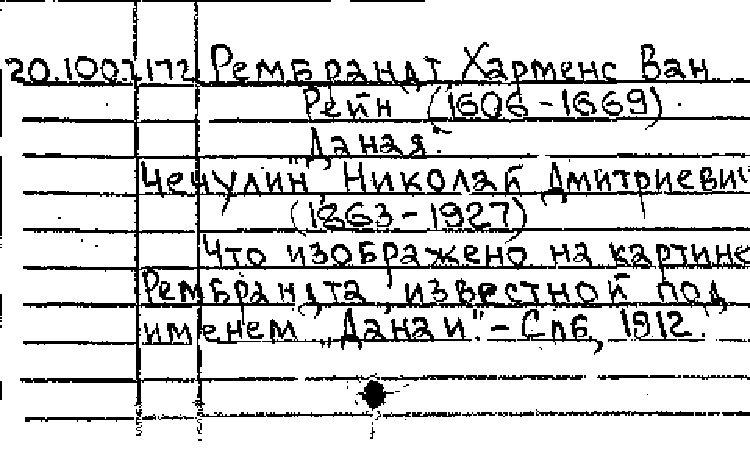 20.100.1172 Рембрандт Харменс Ван
Рейн (1606-1669).
"Даная."
Ченулин, Николай Дмитриевич
(1863-1927)
Что изображено на картине
Рембрандта, известной под
именем „Данаи". - Спб, 1912.